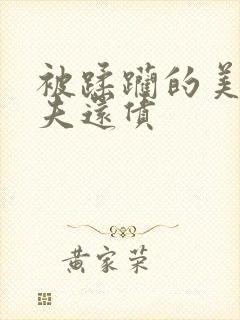 被蹂躏的美
夫還債
黄家荣